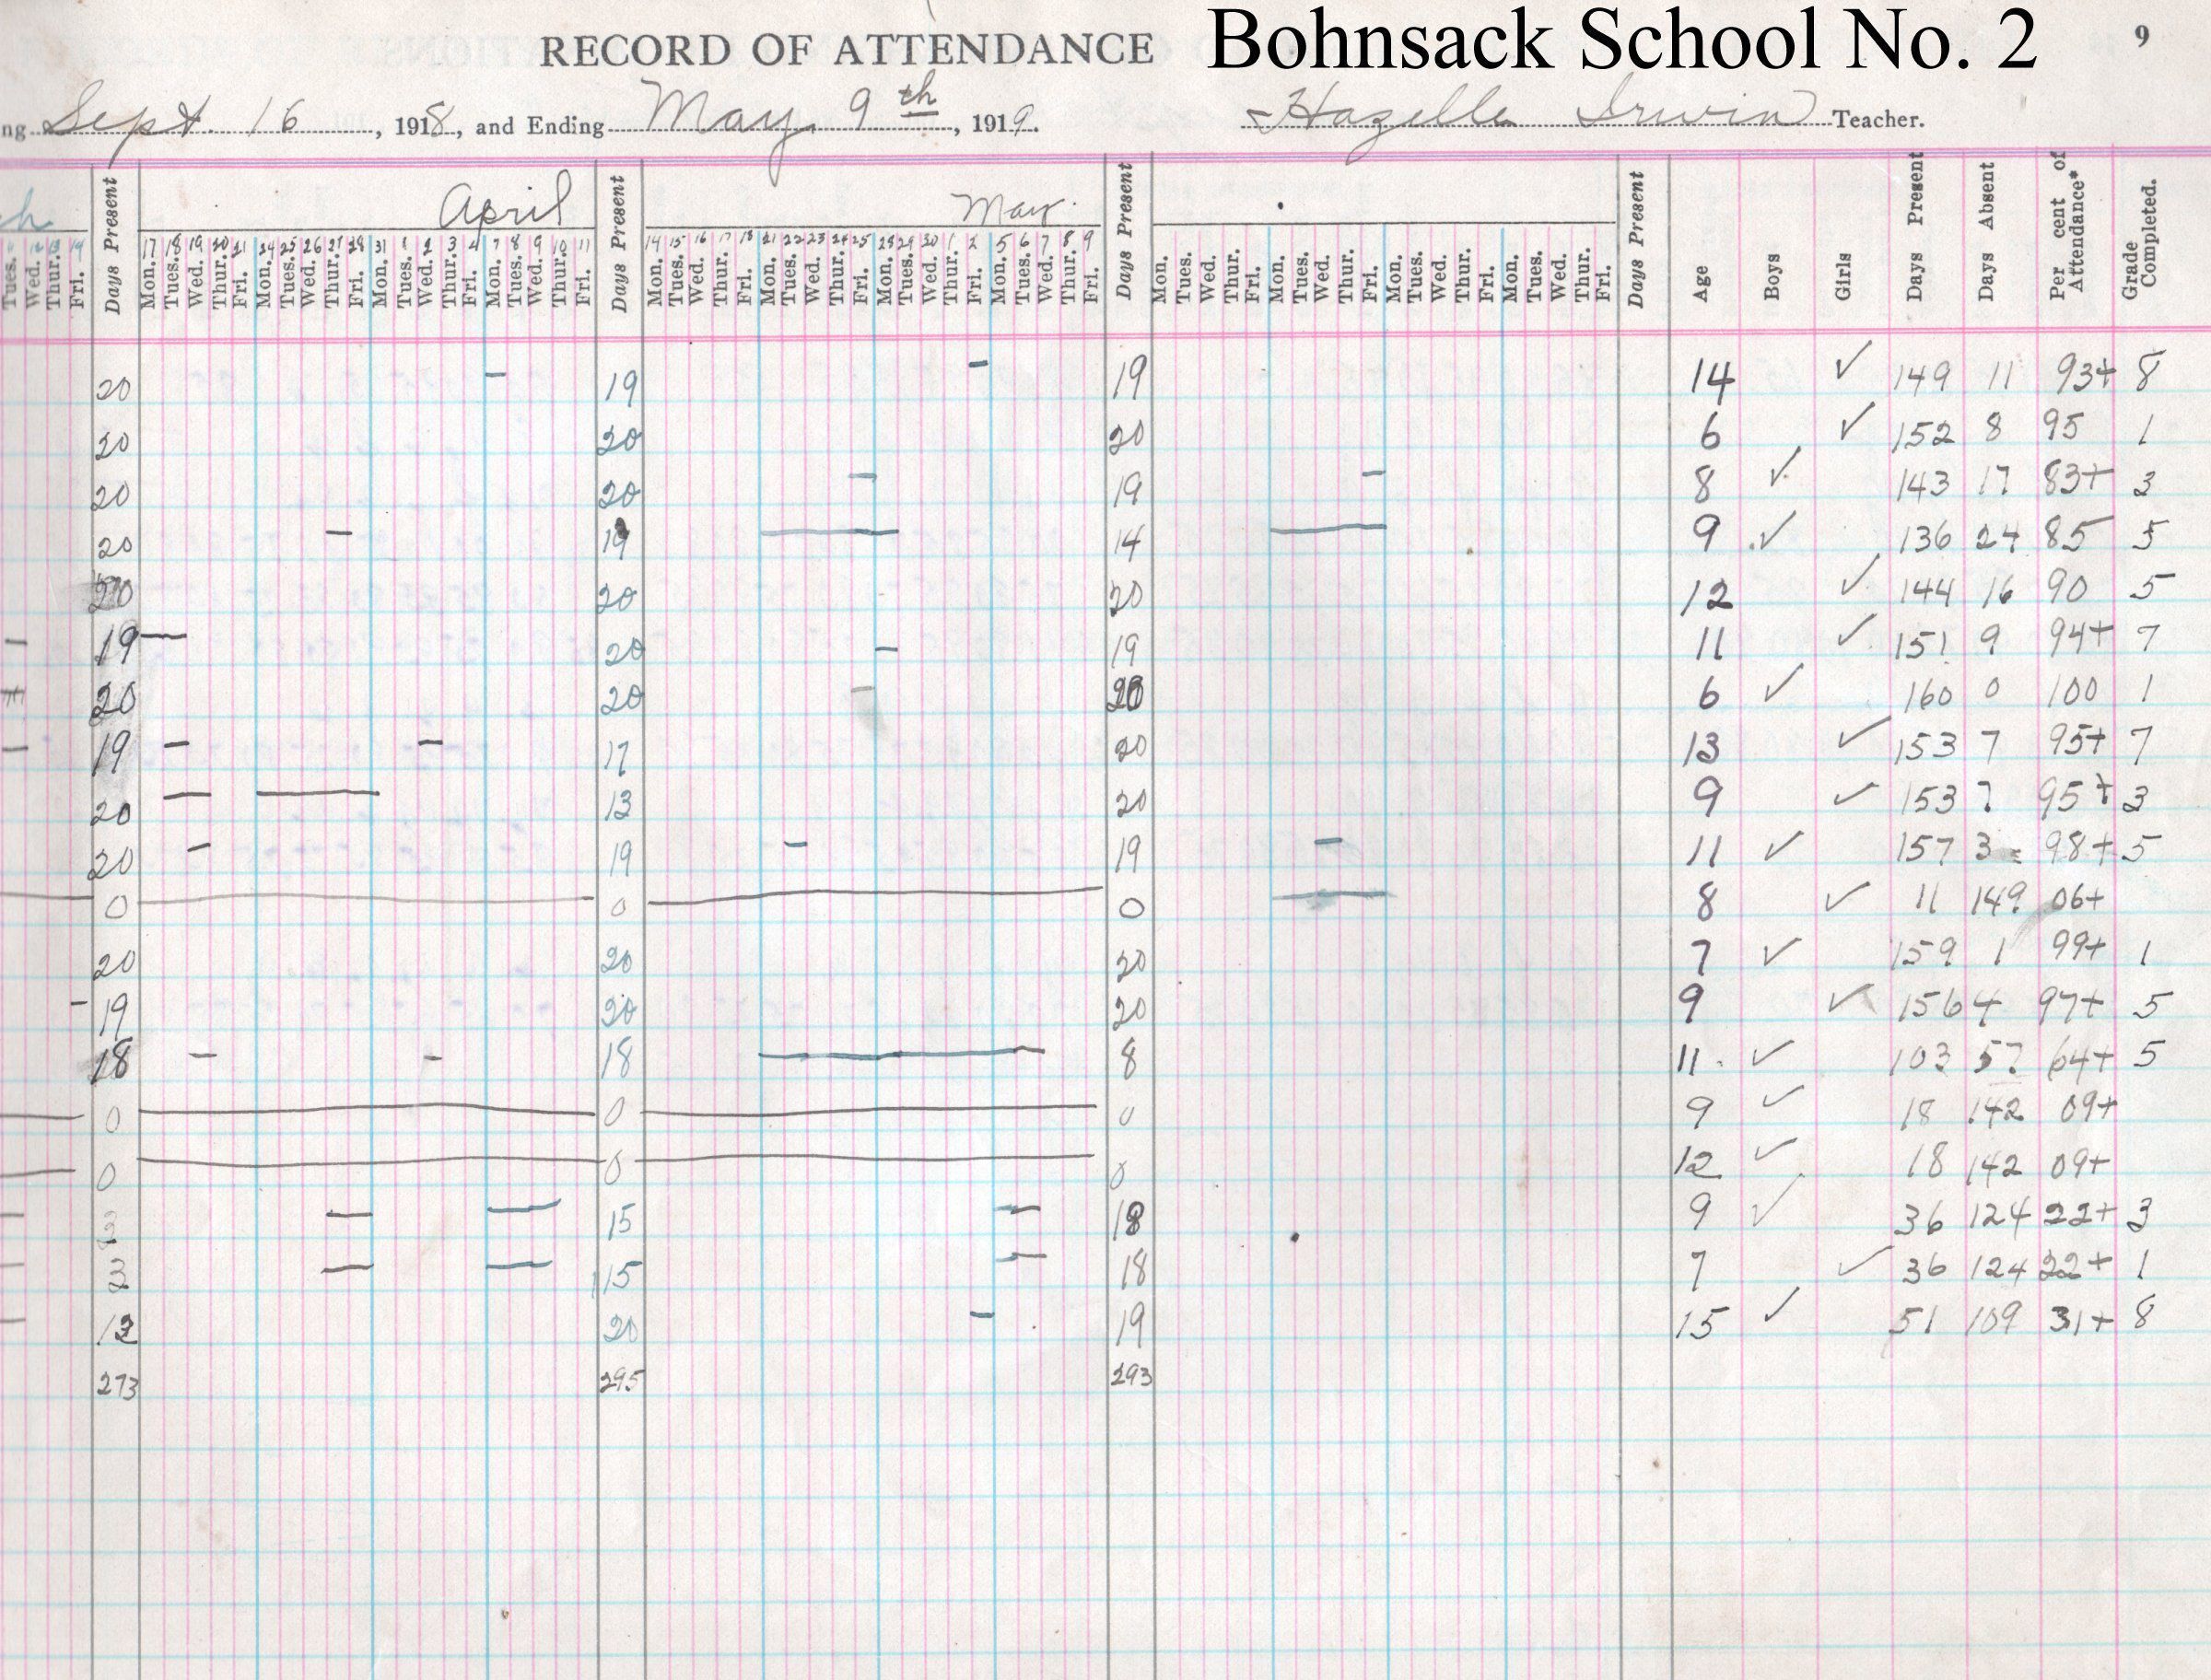 RECORD OF ATTENDANCE Bohnsack School No. 2 9
ng Sept. 16, 1918, and Ending May 9th, 1919. Hazelle Irwin Teacher.
h Days Present April Days Present May Days Present Days Present Age Boys Girls Days Present Days Absent Per cent of Attendance* Grade Completed.
11 12 13 14 17 18 19 20 21 24 25 26 27 28 31 1 2 3 4 7 8 9 10 11 14 15 16 17 18 21 22 23 24 25 28 29 30 1 2 5 6 7 8 9
Tues. Wed. Thur. Fri. Mon. Tues. Wed. Thur. Fri. Mon. Tues. Wed. Thur. Fri. Mon. Tues. Wed. Thur. Fri. Mon. Tues. Wed. Thur. Fri. Mon. Tues. Wed. Thur. Fri. Mon. Tues. Wed. Thur. Fri. Mon. Tues. Wed. Thur. Fri. Mon. Tues. Wed. Thur. Fri. Mon. Tues. Wed. Thur. Fri. Mon. Tues. Wed. Thur. Fri. Mon. Tues. Wed. Thur. Fri. Mon. Tues. Wed. Thur. Fri.
20 19 19 14 ✓ 149 11 93+ 8
20 20 20 6 ✓ 152 8 95 1
20 20 19 8 ✓ 143 17 83+ 3
20 19 14 9 ✓ 136 24 85 5
20 20 20 12 ✓ 144 16 90 5
19 20 19 11 ✓ 151 9 94+ 7
20 20 20 6 ✓ 160 0 100 1
19 17 20 13 ✓ 153 7 95+ 7
20 13 20 9 ✓ 153 7 95+ 3
20 19 19 11 ✓ 157 3 98+ 5
0 0 0 8 ✓ 11 149 06+
20 20 20 7 ✓ 159 1 99+ 1
19 20 20 9 ✓ 156 4 97+ 5
18 18 8 11 ✓ 103 57 64+ 5
0 0 0 9 ✓ 18 142 09+
0 0 0 12 ✓ 18 142 09+
3 15 18 9 ✓ 36 124 22+ 3
3 15 18 7 ✓ 36 124 22+ 1
12 20 19 15 ✓ 51 109 31+ 8
273 295 293